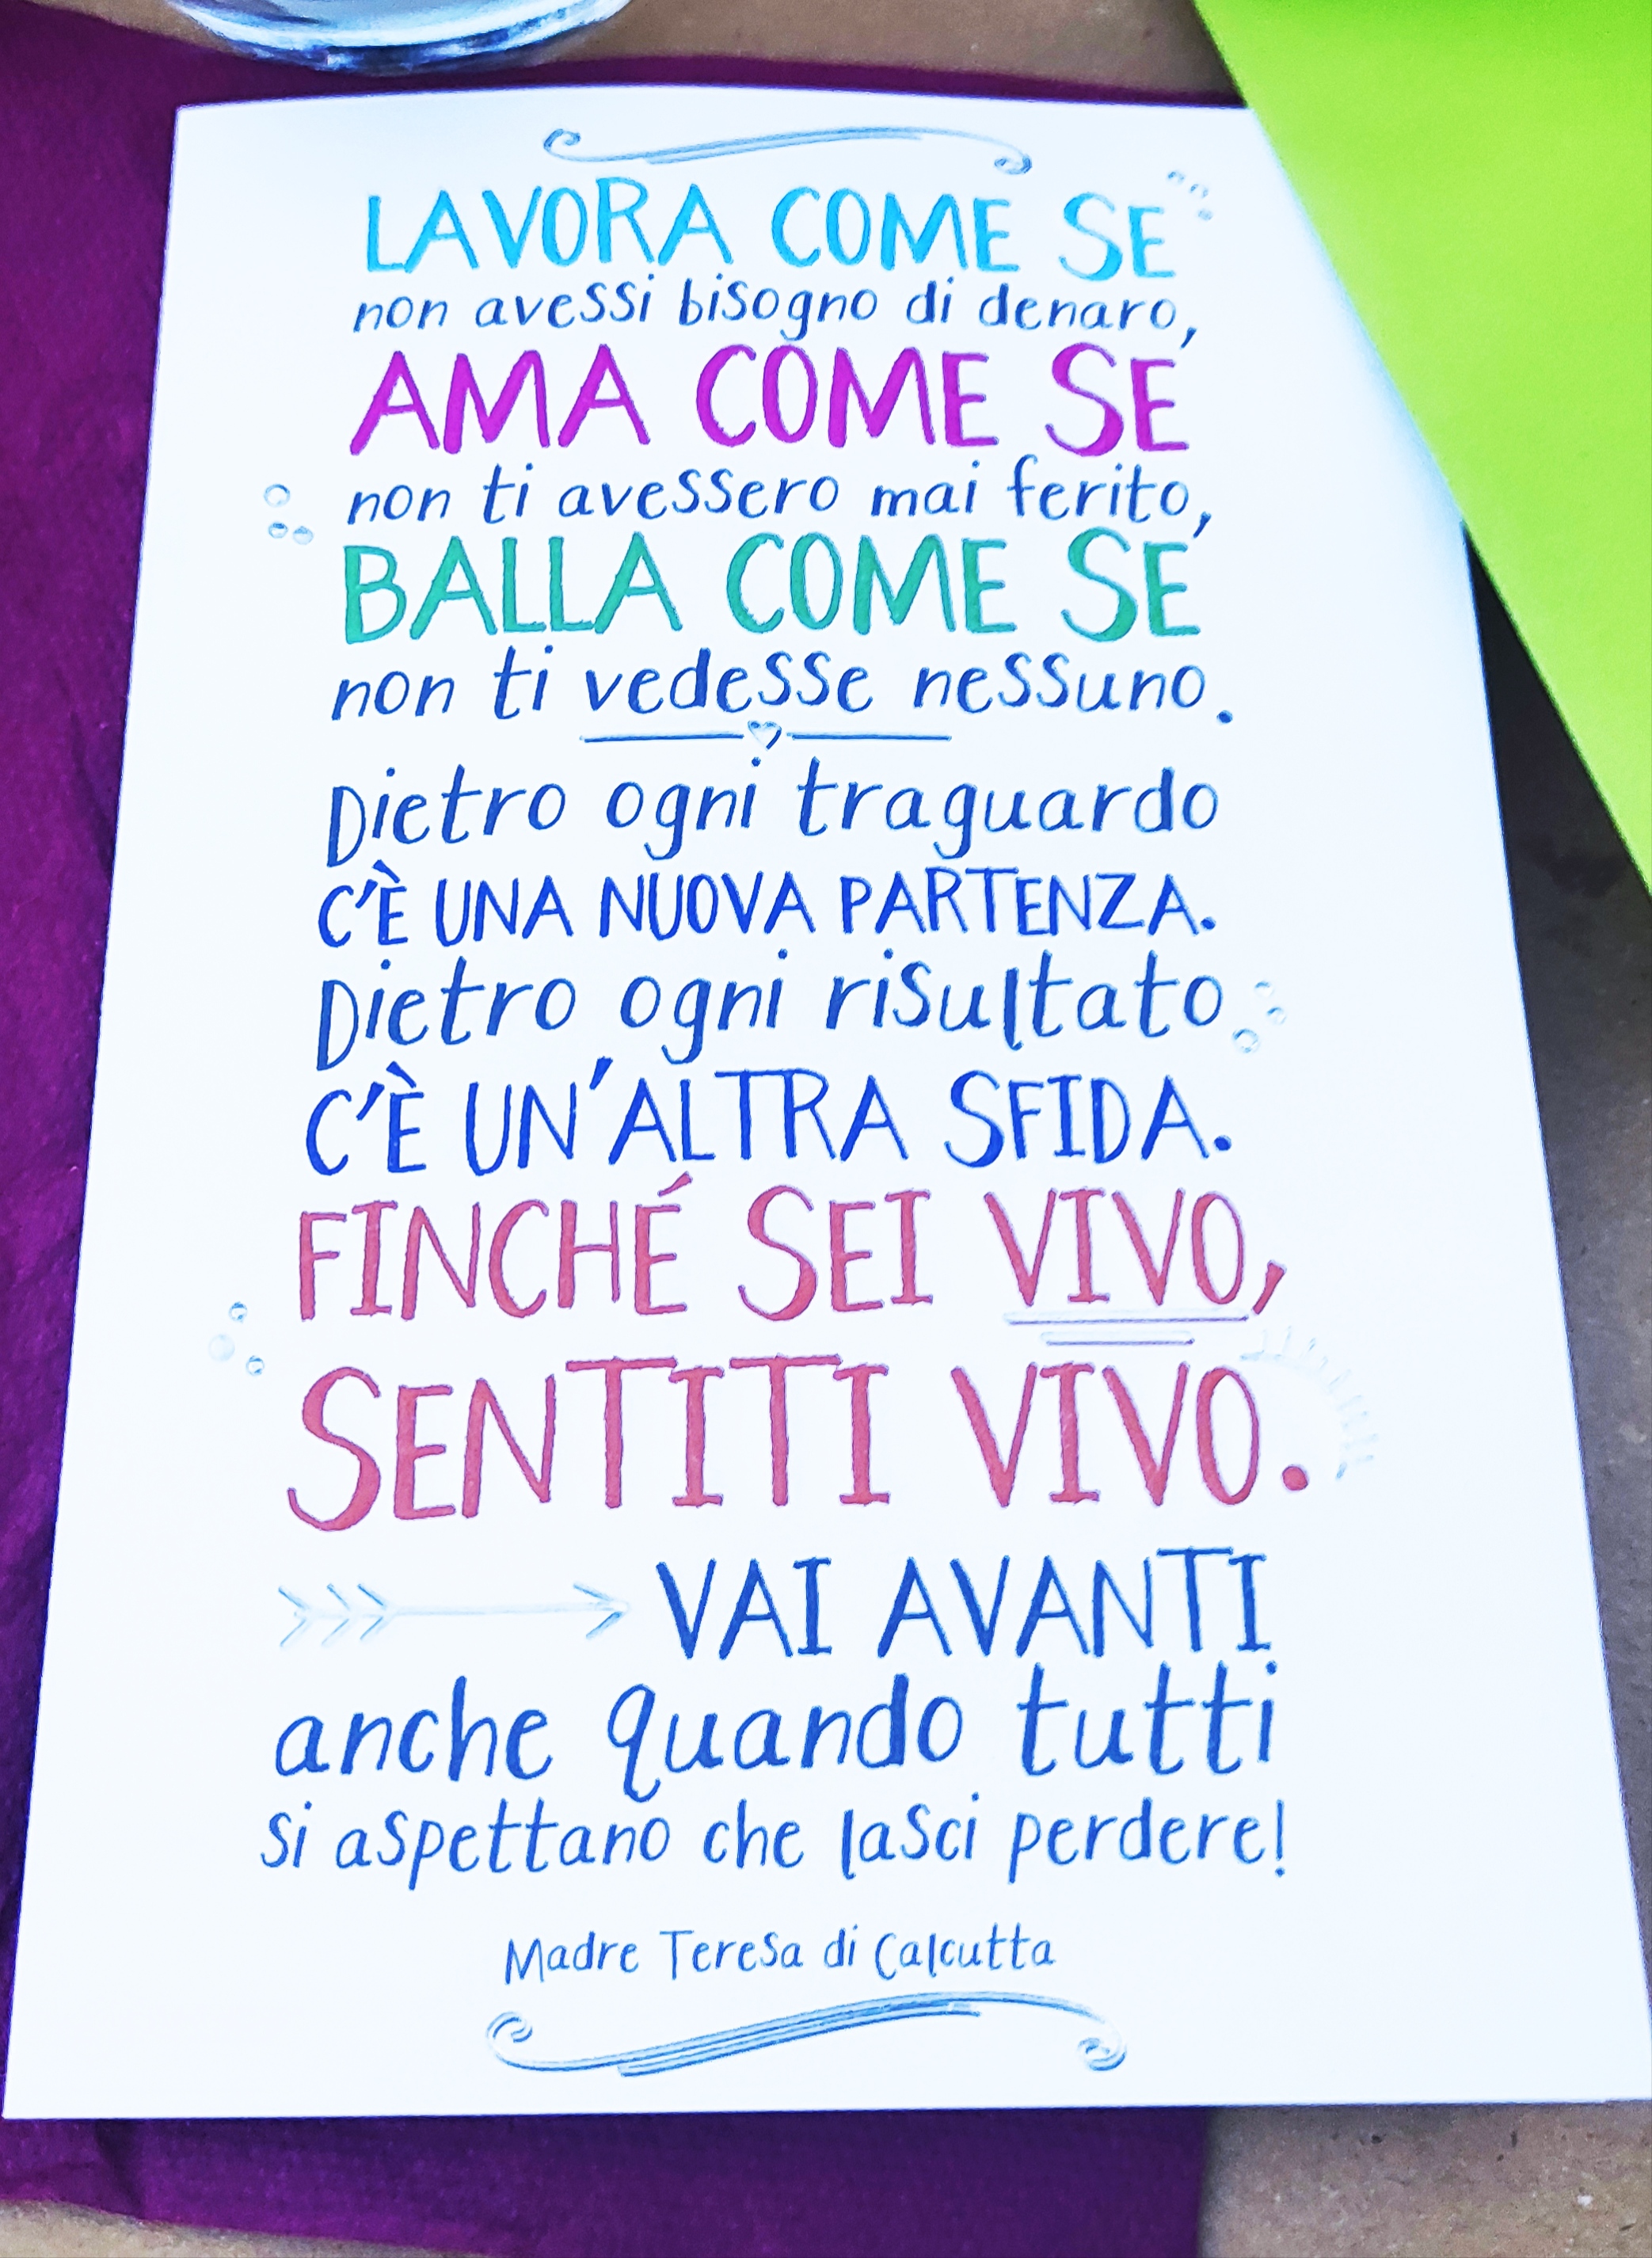 LAVORA COME SE
non avessi bisogno di denaro,
AMA COME SE
non ti avessero mai ferito,
BALLA COME SE
non ti vedesse nessuno.
Dietro ogni traguardo
C'È UNA NUOVA PARTENZA.
Dietro ogni risultato
C'È UN'ALTRA SFIDA.
FINCHÉ SEI VIVO,
SENTITI VIVO.
VAI AVANTI
anche quando tutti
si aspettano che lasci perdere!
Madre Teresa di Calcutta